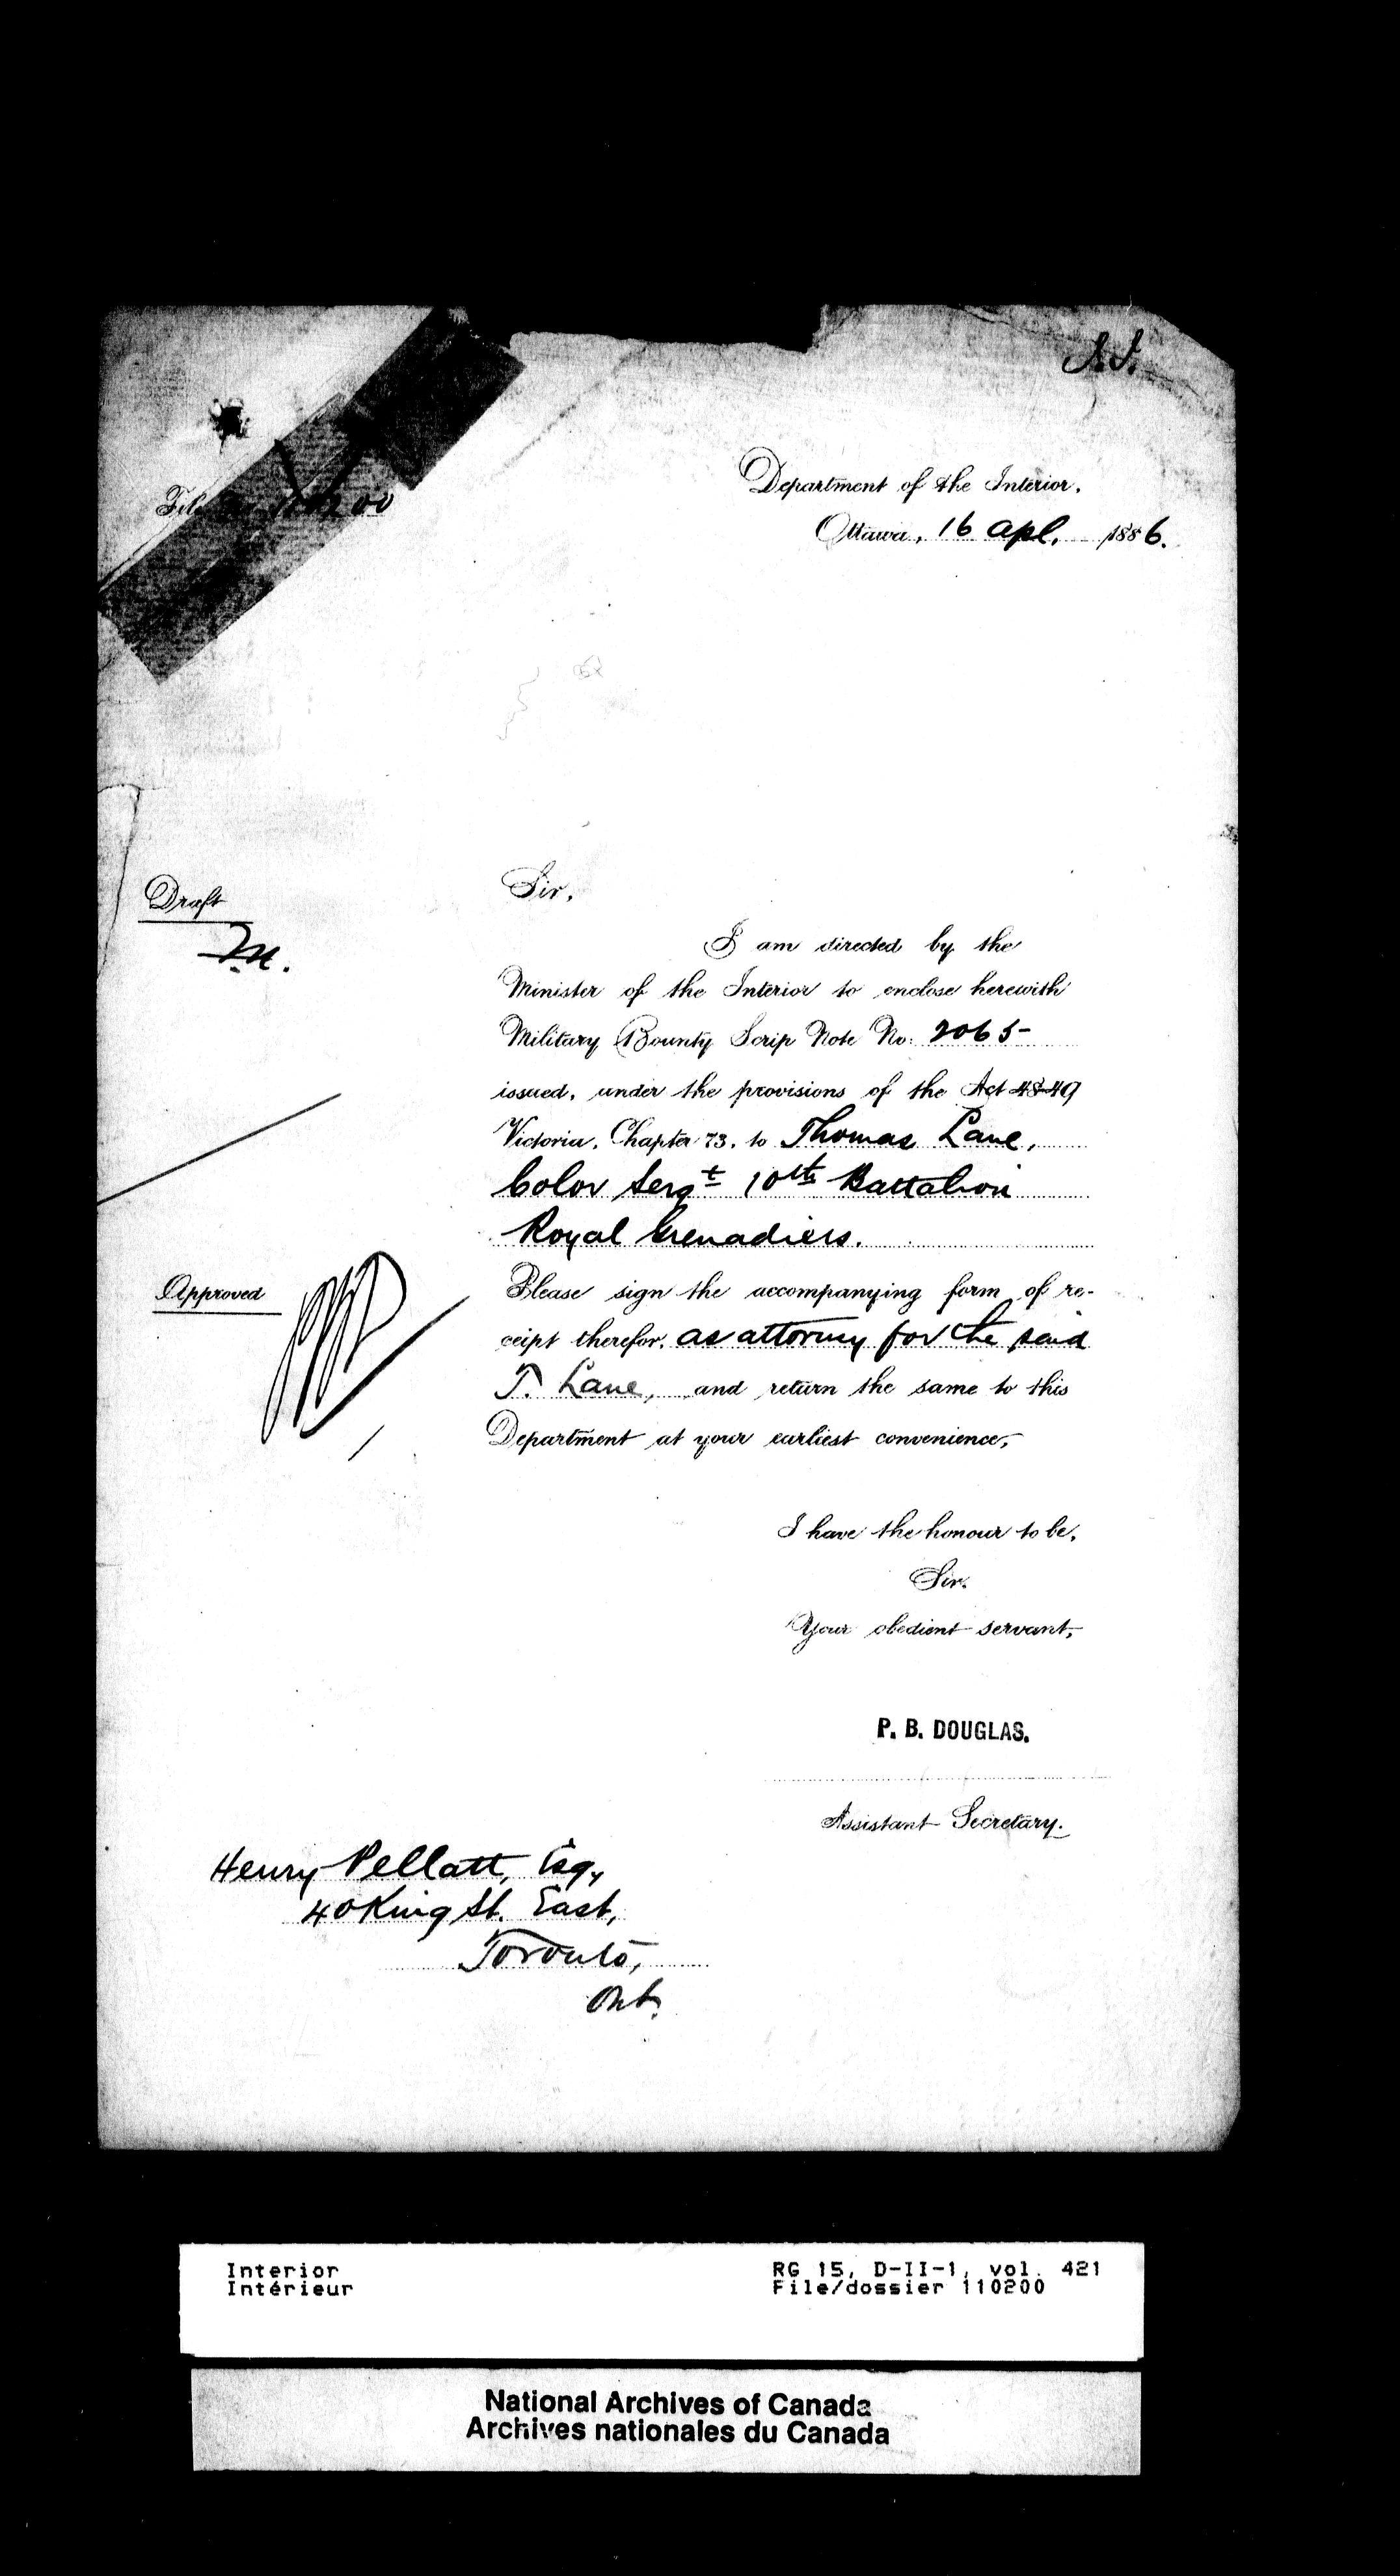 A.S.
File No. 110200
Department of the Interior,
Ottawa, 16 Apl. 1886.
Draft
Sir,
I am directed by the
Minister of the Interior to enclose herewith
Military Bounty Scrip Note No. 2065
issued, under the provisions of the Act 48-49
Victoria, Chapter 73, to Thomas Lane,
Color Sergt 10th Battalion
Royal Grenadiers.
Approved
Please sign the accompanying form of re-
ceipt therefor, as attorney for the said
T. Lane, and return the same to this
Department at your earliest convenience,
I have the honour to be,
Sir,
Your obedient servant,
P. B. DOUGLAS.
Assistant Secretary.
Henry Pellatt, Esq,
40 King St. East,
Toronto,
Ont.
Interior
Intérieur
RG 15, D-II-1, vol. 421
File/dossier 110200
National Archives of Canada
Archives nationales du Canada